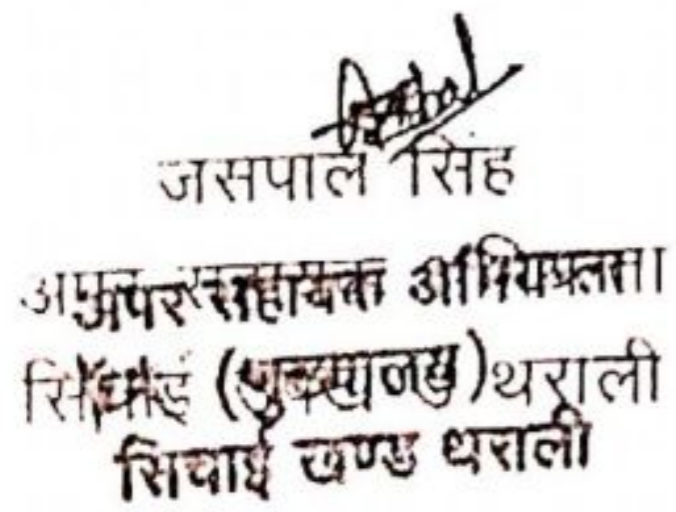 जसपाल सिंह
अपर सहायक अभियन्ता
सिंचाई थराली
सिचाई खण्ड थराली